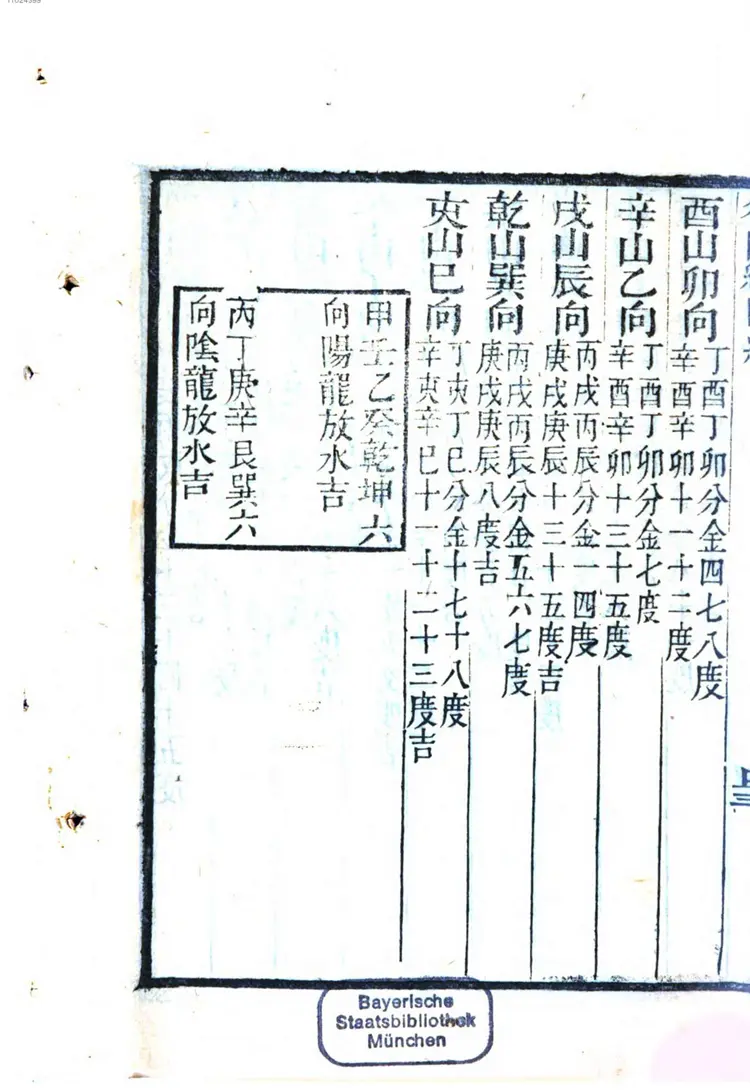 11024399
酉山卯向
丁酉丁卯分金四七八度
辛酉辛卯十一十二度
辛山乙向
丁酉丁卯分金七度
辛酉辛卯十三十五度
戌山辰向
丙戌丙辰分金一四度
庚戌庚辰十三十五度吉
乾山巽向
丙戌丙辰分金五六七度
庚戌庚辰八度吉
亥山巳向
丁亥丁巳分金十七十八度
辛亥辛巳十一十二十三度吉
甲壬乙癸乾坤六
向陽龍放水吉
丙丁庚辛艮巽六
向陰龍放水吉
Bayerische
Staatsbibliothek
München